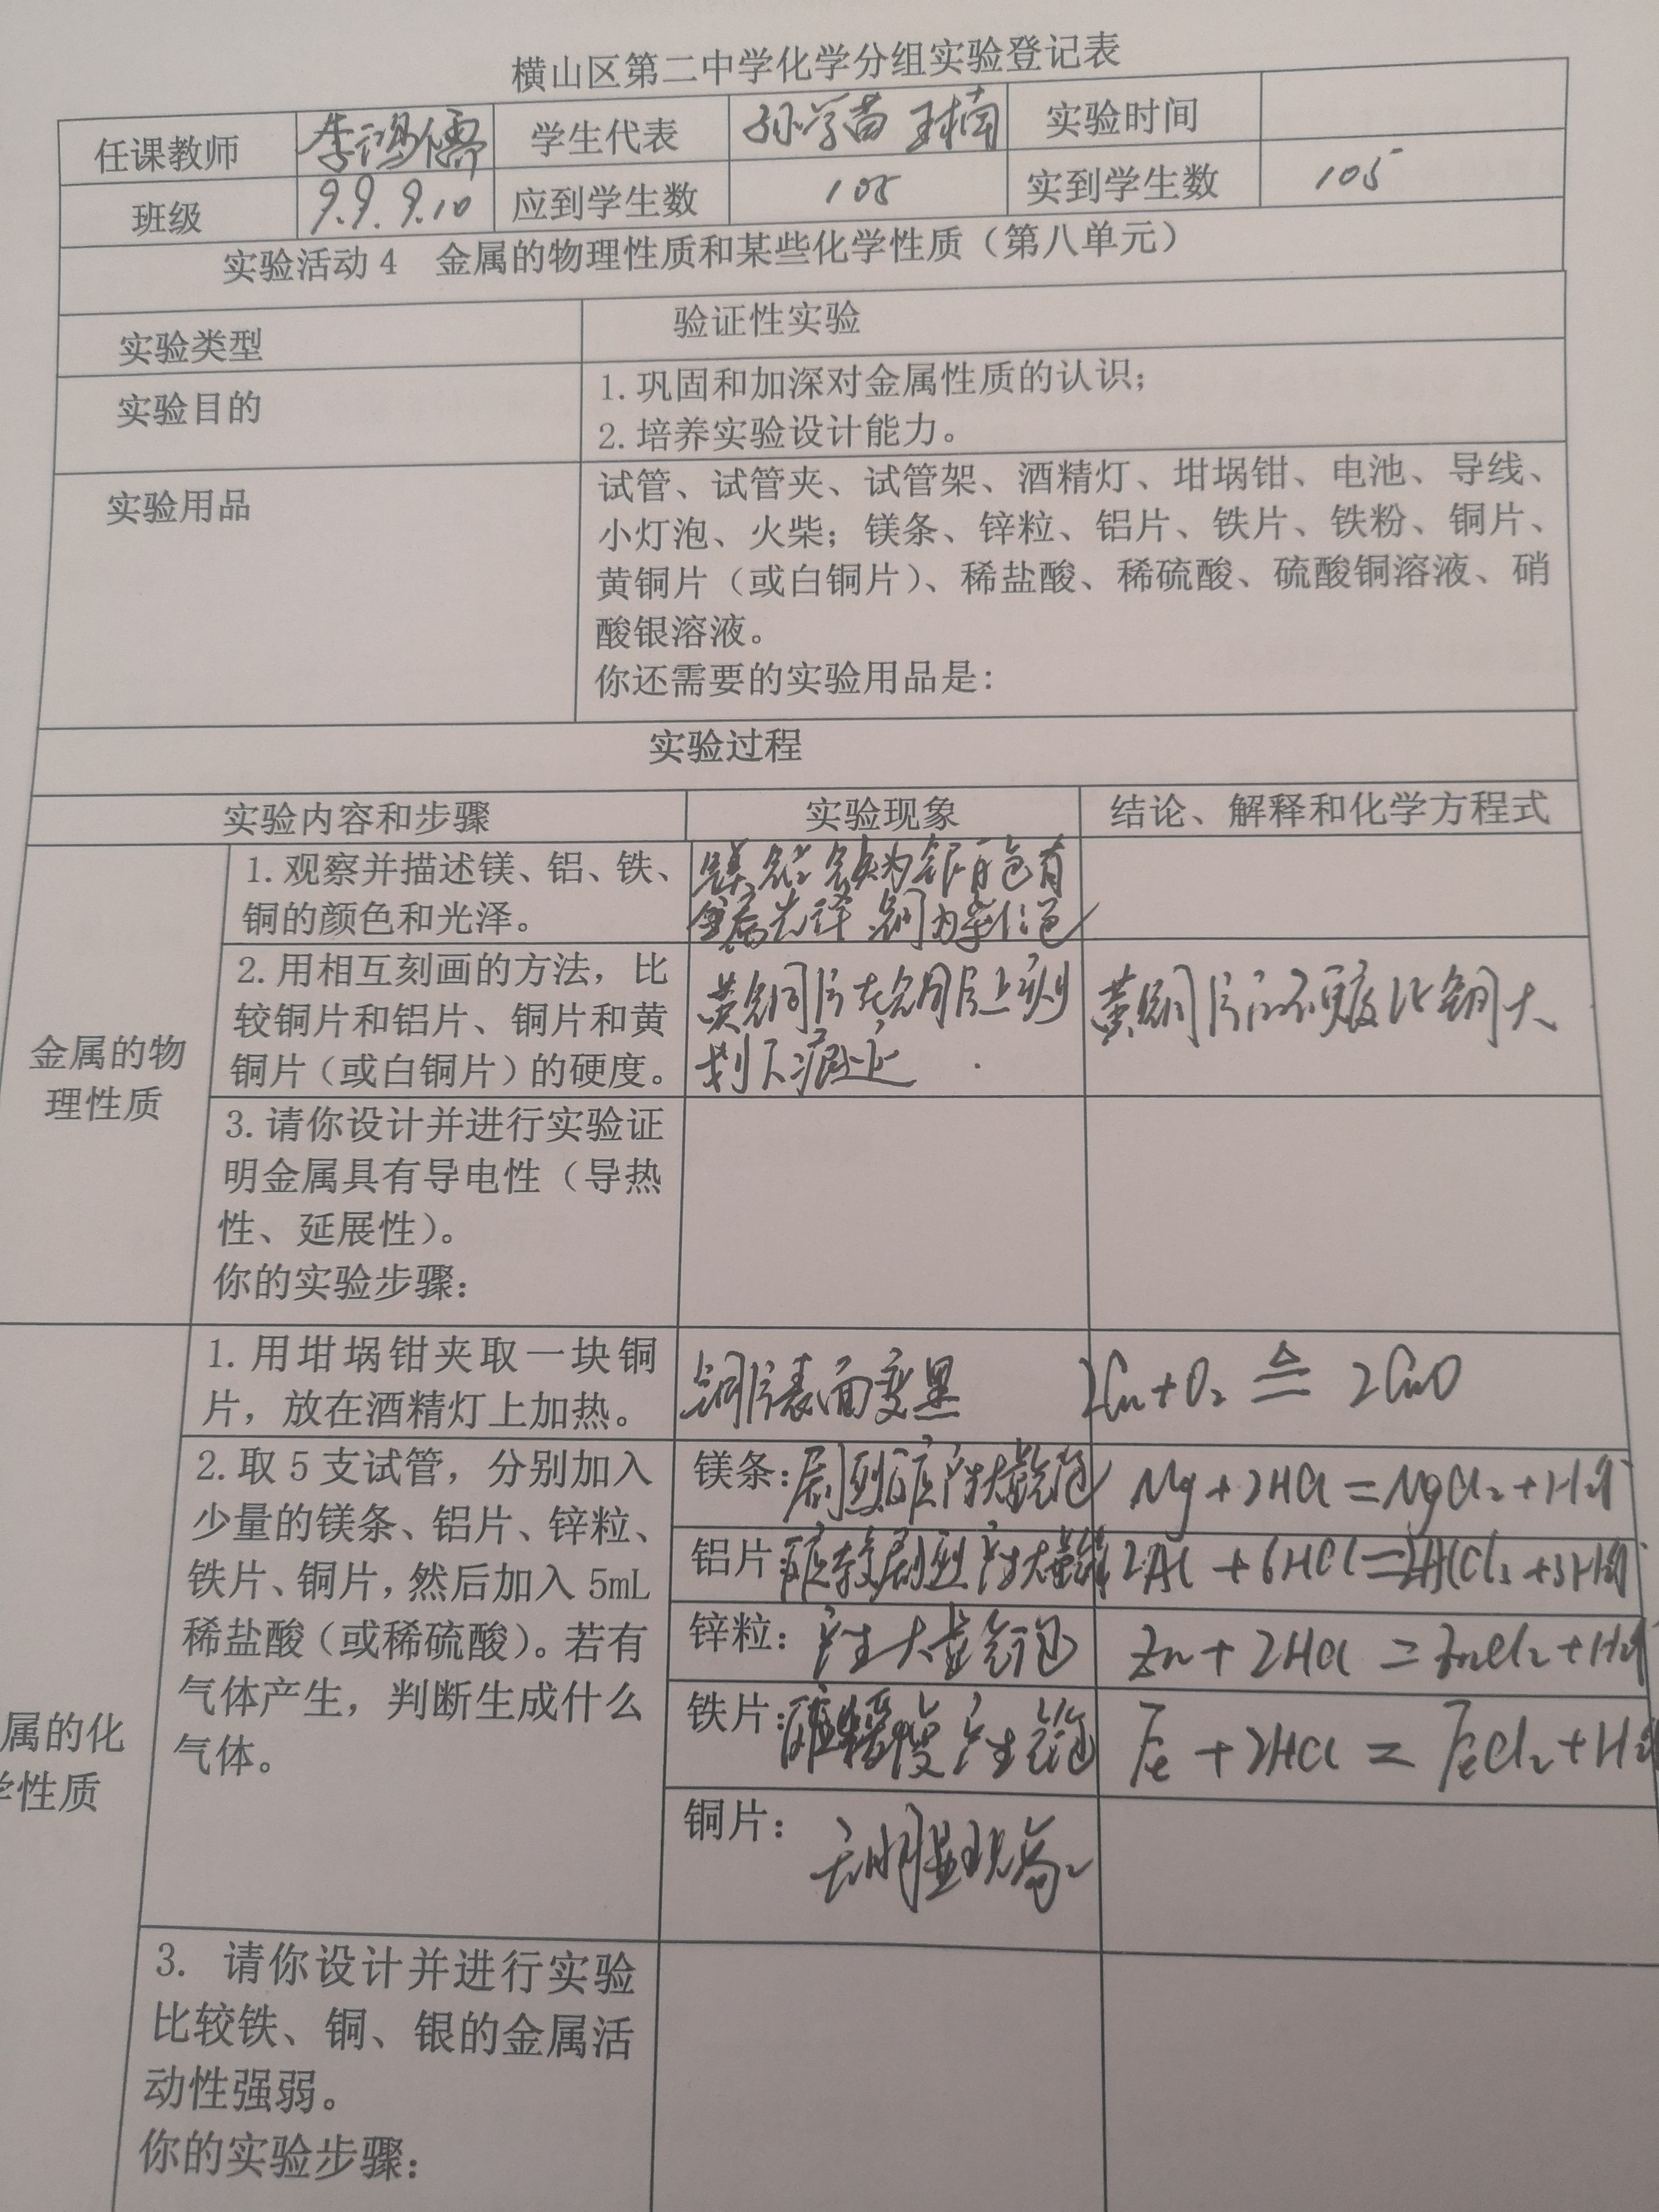 横山区第二中学化学分组实验登记表
任课教师 李鸿儒 学生代表 孙学苗 王楠 实验时间
班级 9.9. 9.10 应到学生数 105 实到学生数 105
实验活动4 金属的物理性质和某些化学性质（第八单元）
实验类型 验证性实验
实验目的 1.巩固和加深对金属性质的认识；
2.培养实验设计能力。
实验用品 试管、试管夹、试管架、酒精灯、坩埚钳、电池、导线、
小灯泡、火柴；镁条、锌粒、铝片、铁片、铁粉、铜片、
黄铜片（或白铜片）、稀盐酸、稀硫酸、硫酸铜溶液、硝
酸银溶液。
你还需要的实验用品是：
实验过程
实验内容和步骤 实验现象 结论、解释和化学方程式
金属的物
理性质
1.观察并描述镁、铝、铁、
铜的颜色和光泽。
镁、铝、铁为银白色有
金属光泽 铜为紫红色
2.用相互刻画的方法，比
较铜片和铝片、铜片和黄
铜片（或白铜片）的硬度。
黄铜片在铜片上刻
划下痕迹
黄铜片的硬度比铜大
3.请你设计并进行实验证
明金属具有导电性（导热
性、延展性）。
你的实验步骤：
属的化
学性质
1.用坩埚钳夹取一块铜
片，放在酒精灯上加热。
铜片表面变黑
2Cu+O₂ ≜ 2CuO
2.取5支试管，分别加入
少量的镁条、铝片、锌粒、
铁片、铜片，然后加入5mL
稀盐酸（或稀硫酸）。若有
气体产生，判断生成什么
气体。
镁条：剧烈反应产生大量气泡 Mg+2HCl=MgCl₂+H₂↑
铝片：反应较剧烈产生大量 2Al+6HCl=2AlCl₃+3H₂↑
锌粒：产生大量气泡 Zn+2HCl=ZnCl₂+H₂↑
铁片：反应缓慢产生气泡 Fe+2HCl=FeCl₂+H₂
铜片：无明显现象
3. 请你设计并进行实验
比较铁、铜、银的金属活
动性强弱。
你的实验步骤：